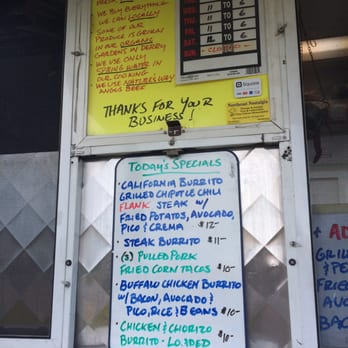 WE BUY EVERYTHING
WE CAN LOCALLY
SOME OF OUR
PRODUCE IS GROWN
IN OUR ORGANIC
GARDENS IN DERRY
WE USE ONLY
SPRING WATER IN
OUR COOKING
WE USE NATURES WAY
ANGUS BEEF
THUR. 11 TO 6
FRI. 11 TO 6
SAT. 11 TO 6
SUN. CLOSED
Square
Northeast Nostalgia
THANKS FOR YOUR
BUSINESS!
TODAY'S SPECIALS
• CALIFORNIA BURRITO
GRILLED CHIPOTLE CHILI
FLANK STEAK W/
FRIED POTATOS, AVOCADO,
PICO & CREMA $12-
• STEAK BURRITO $11-
• (3) PULLED PORK
FRIED CORN TACOS $10-
• BUFFALO CHICKEN BURRITO
W/ BACON, AVOCADO &
PICO, RICE & BEANS $10-
• CHICKEN & CHORIZO
BURRITO - LOADED $10-
+ AD
GRILL
& PE
FRIED
AVO
BAC